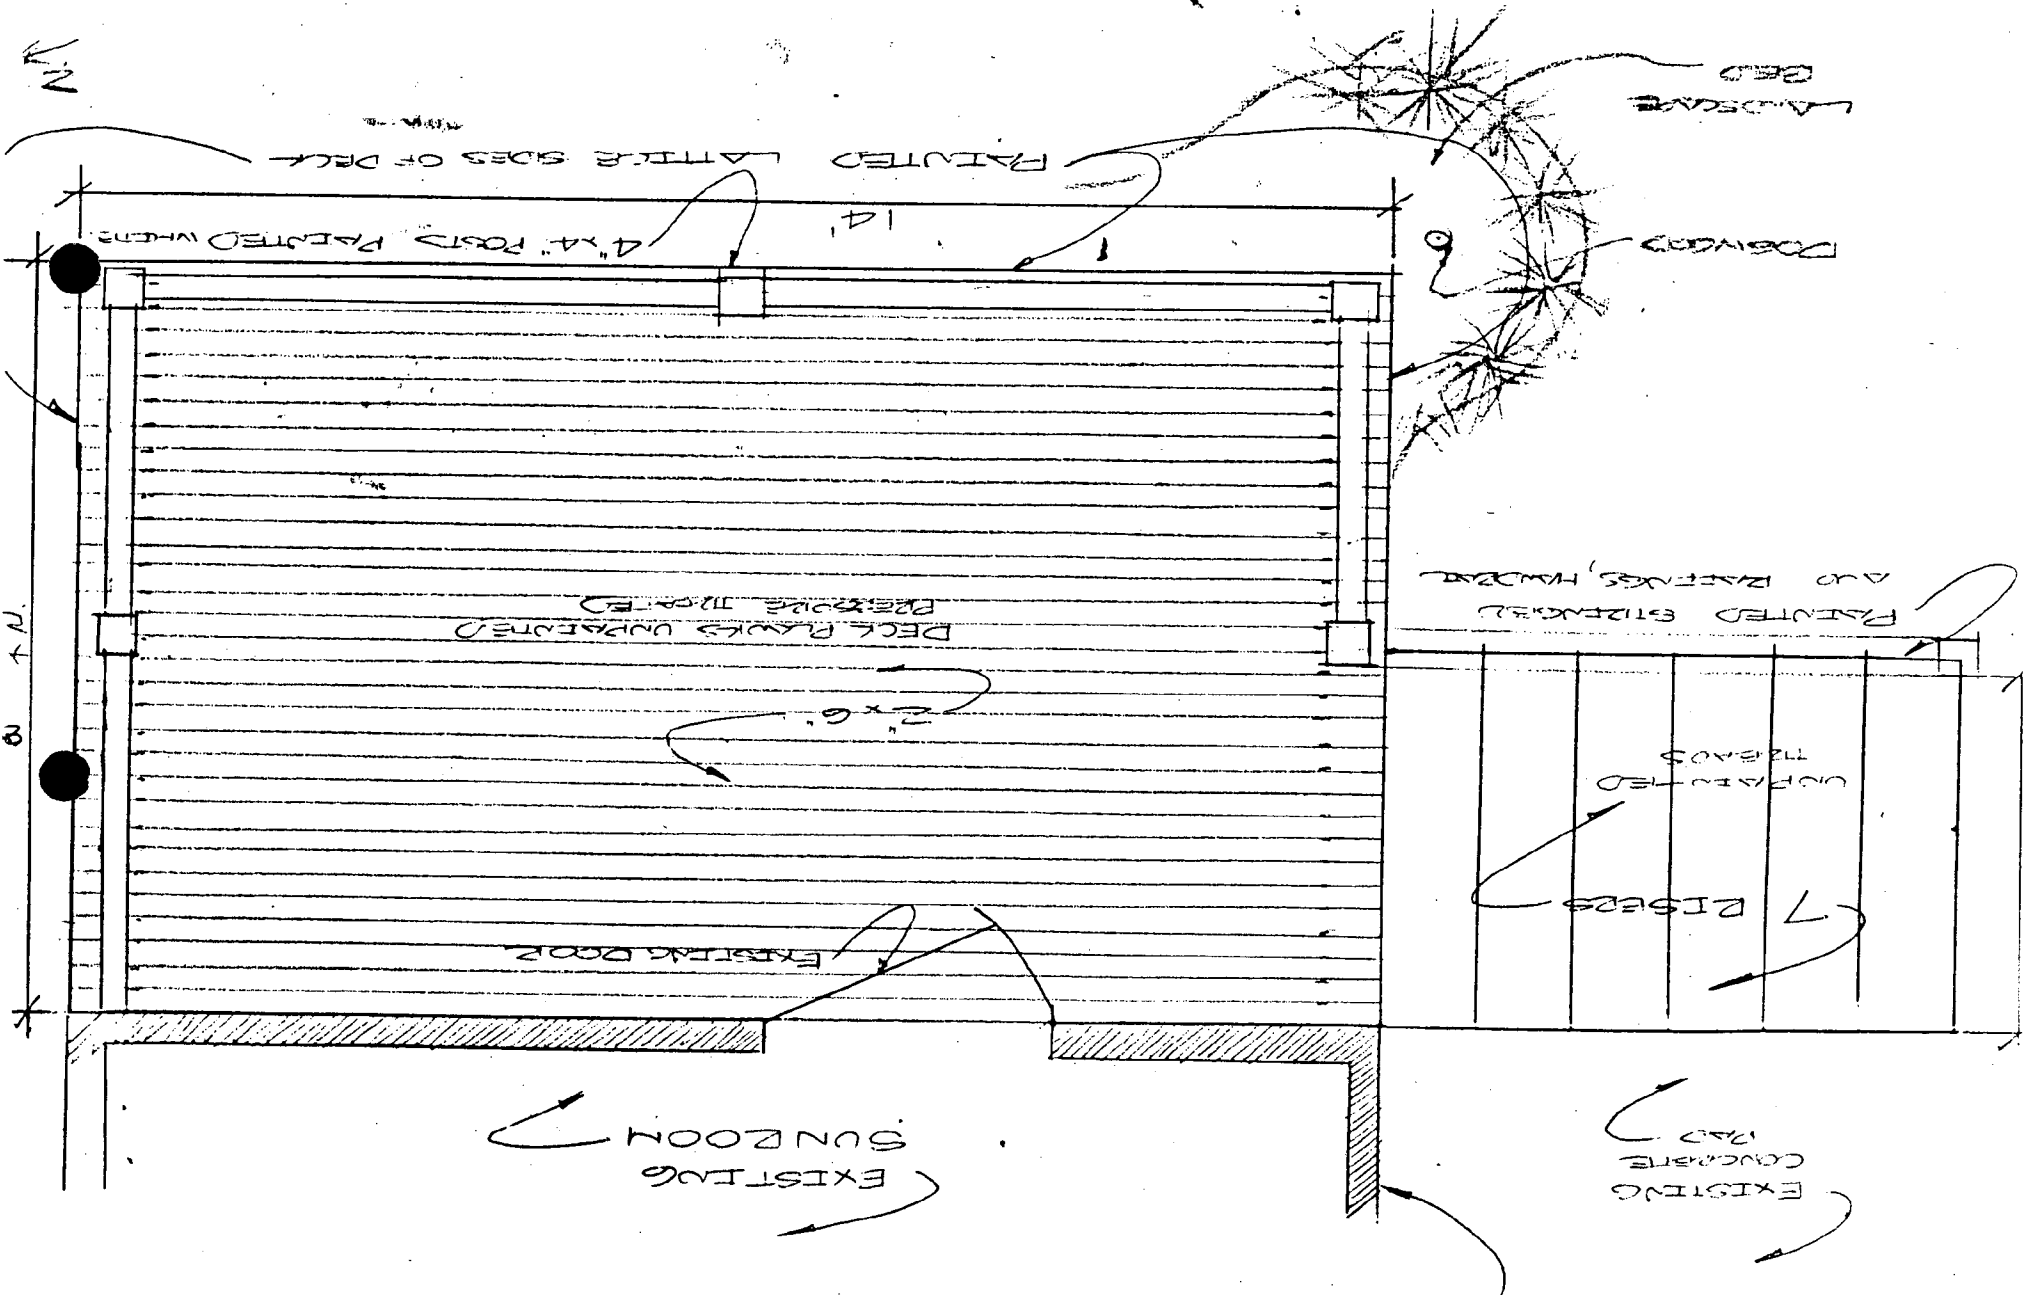 EXISTING
CONCRETE
PAD
EXISTING
SUNROOM
EXISTING DOOR
7 RISERS
UNPAINTED
TREADS
2"x6"
DECK PLANKS UNPAINTED
PRESSURE TREATED
PAINTED STRINGER
AND RAILINGS, HANDRAIL
DOGWOOD
4"x4" POSTS PAINTED WHITE
14'
PAINTED LATTICE SIDES OF DECK
LANDSCAPE
BED
N